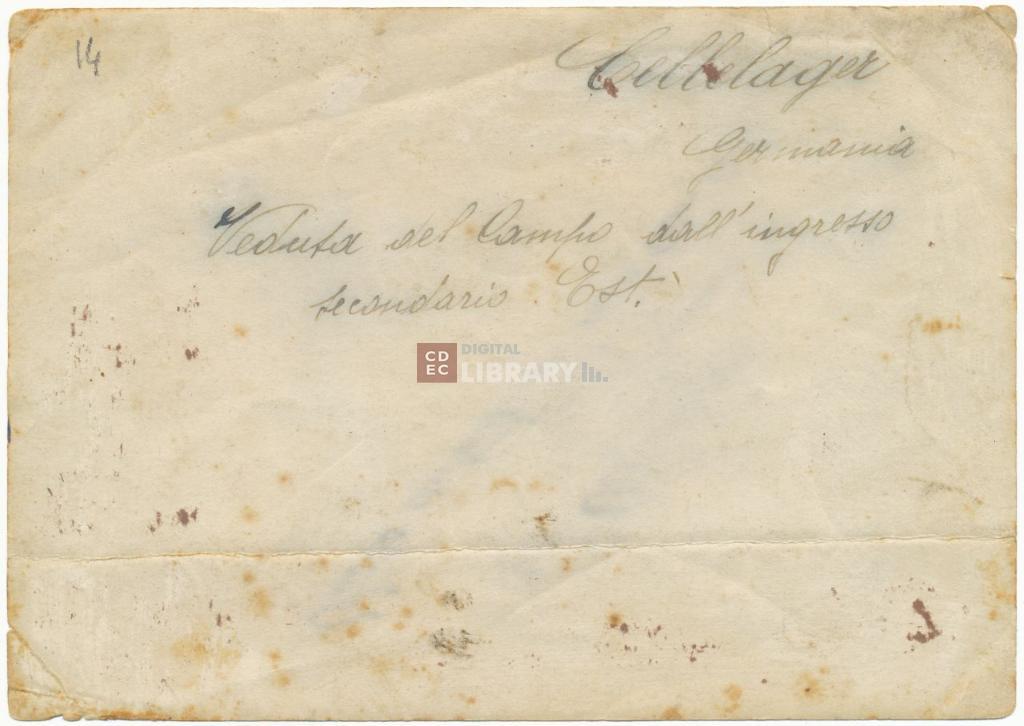 14
Cellelager
Germania
Veduta del Campo dall'ingresso
secondario Est.
CD
EC
DIGITAL
LIBRARY